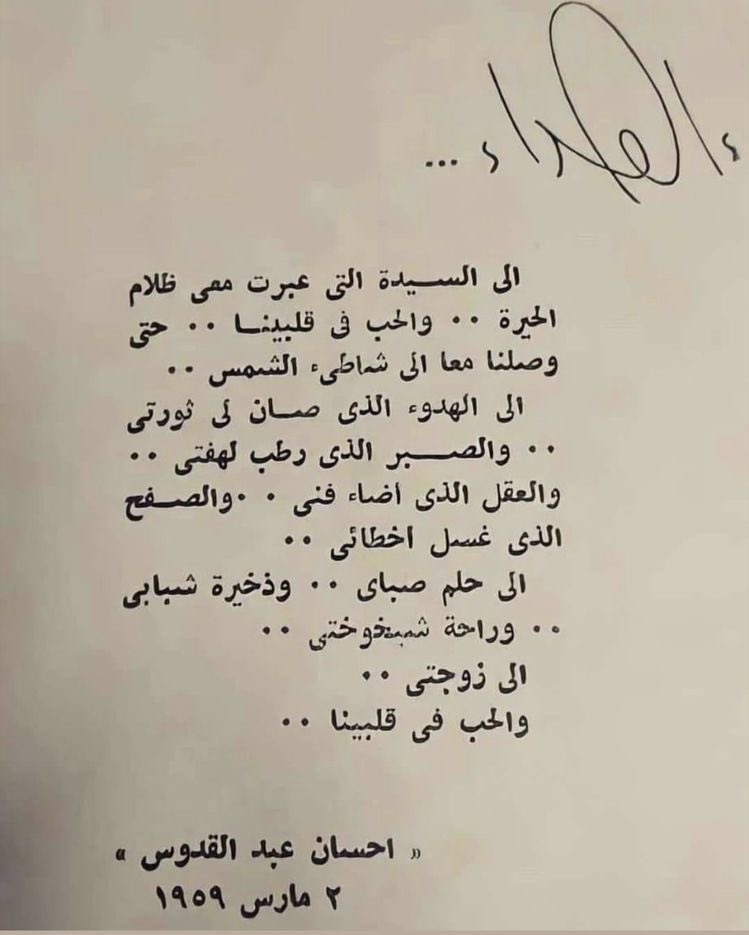 الاهداء ...
الى السيدة التى عبرت معى ظلام
الحيرة .. والحب فى قلبينا .. حتى
وصلنا معا الى شاطىء الشمس ..
الى الهدوء الذى صان لى ثورتى
.. والصبر الذى رطب لهفتى ..
والعقل الذى أضاء فنى . . والصفح
الذى غسل اخطائى ..
الى حلم صباى .. وذخيرة شبابى
.. وراحة شيخوختى ..
الى زوجتى ..
والحب فى قلبينا ..
« احسان عبد القدوس »
٢ مارس ١٩٥٩